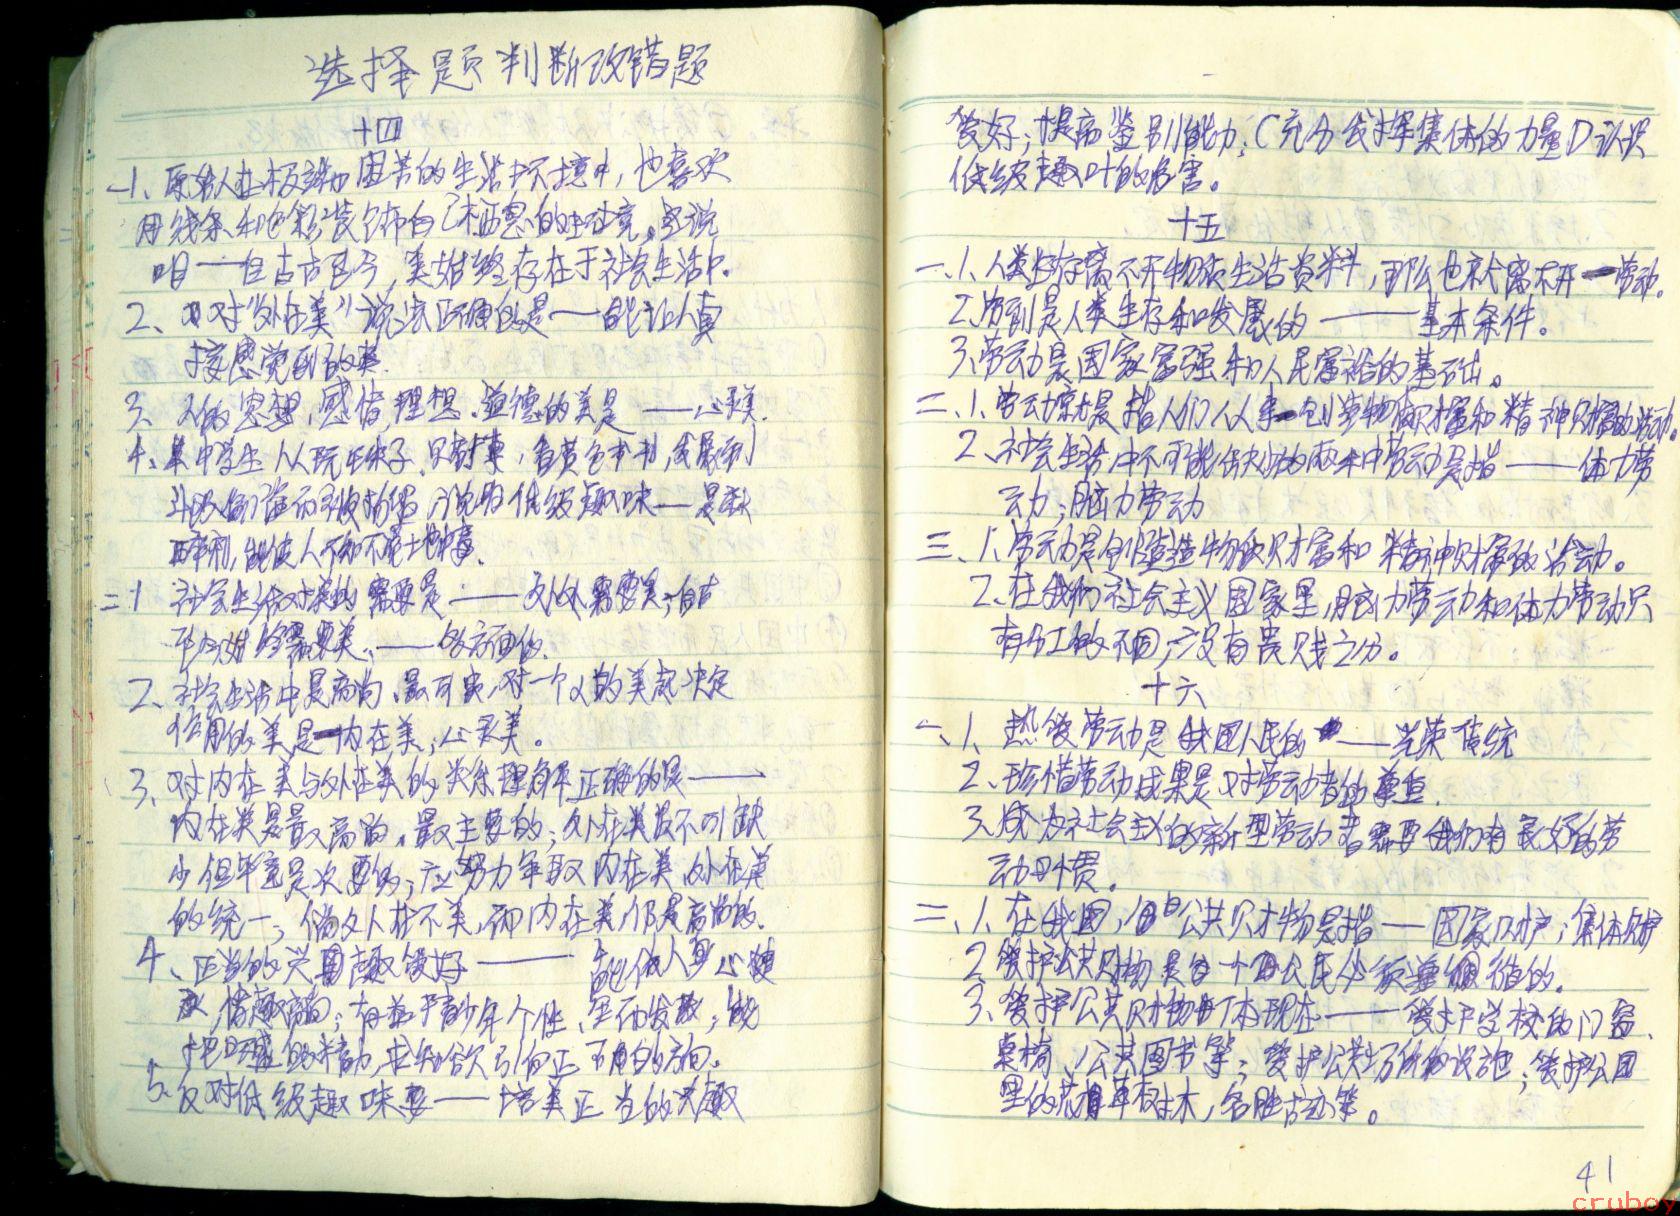 选择题判断改错题
十四
一1、原始人在极端困苦的生活环境中,也喜欢
用线条和色彩装饰自己栖息的环境。这说
明——自古至今,美始终存在于社会生活中。
2、对"外在美"说法正确的是——能让人直
接感觉到的美.
3、人的思想、感情、理想、道德的美是——心灵美.
4、某中学生从玩
看黄色书刊,
低级趣味——是
能使人不知不觉地中毒.
二1 社会生活对美的需要是——
的需要美、——多方面的.
2、社会生活中最高尚、最可贵,对一个人的美起决定
作用的美是—内在美;心灵美。
3、对内在美与外在美的关系理解正确的是——
内在美是最高尚、最主要的;外在美虽不可缺
少但毕竟是次要的;应努力争取内在美、外在美
的统一;倘若外在不美,而内在美仍是高尚的.
4、正当的兴趣爱好——能使人身心健
康,情趣高尚;有益于青少年个性、全面发展;能
把旺盛的精力,求知欲引向正确的方向.
5.反对低级趣味要——培养正当的兴趣
爱好;提高鉴别能力;C充分发挥集体的力量D认识
低级趣味的危害。
十五
一、1、人类生存离不开物质生活资料,那么也就离不开—劳动.
2.劳动是人类生存和发展的——基本条件。
3、劳动是国家富强和人民富裕的基础。
二、1、劳动就是指人们从事—创造物质财富和精神财富的活动.
2、社会生活中不可能缺少的两种劳动是指——体力劳
动;脑力劳动
三、1、劳动是创造物质财富和精神财富的活动。
2、在我们社会主义国家里,脑力劳动和体力劳动只
有分工的不同,没有贵贱之分。
十六
一、1、热爱劳动是我国人民的——光荣传统
2、珍惜劳动成果是对劳动者的尊重.
3、成为社会主义的新型劳动者需要我们有良好的劳
动习惯。
二、1、在我国,公共财物是指——国家财产;集体财产
2、爱护公共财物是每个公民必须遵循的.
3、爱护公共财物具体现在——爱护学校的门窗、
桌椅、公共图书等;爱护公共场所的设施;爱护公园
里的花草树木,名胜古迹等。
41
cruboy